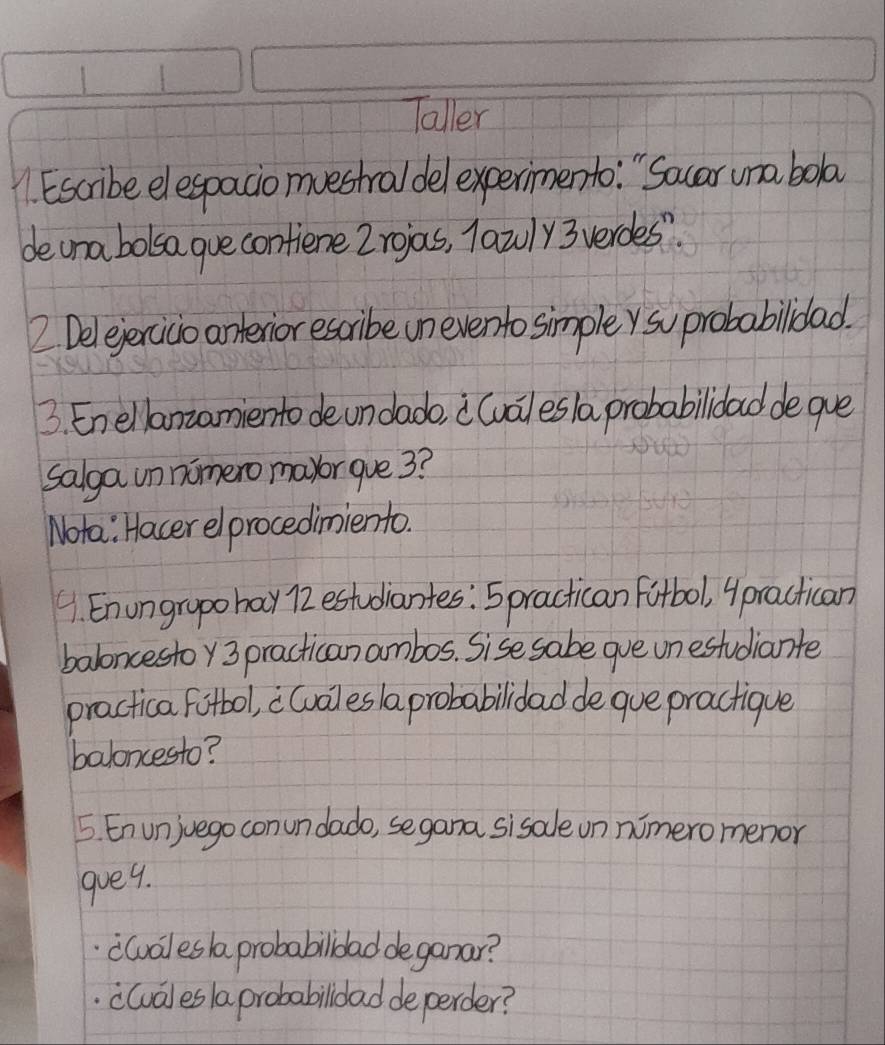 Taller
1. Escribe el espacio muestral del experimento: "Sacar una bola
de una bolsa que contiene 2 rojas, 1 azul y 3 verdes".
2. Del ejercicio anterior escribe un evento simple y su probabilidad.
3. En el lanzamiento de un dado, ¿Cuál es la probabilidad de que
salga un número mayor que 3?
Nota: Hacer el procedimiento.
4. En un grupo hay 12 estudiantes: 5 practican Fútbol, 4 practican
baloncesto y 3 practican ambos. Si se sabe que un estudiante
practica Fútbol, ¿Cuál es la probabilidad de que practique
baloncesto?
5. En un juego con un dado, se gana si sale un número menor
que 4.
· ¿Cuál es la probabilidad de ganar?
· ¿Cuál es la probabilidad de perder?